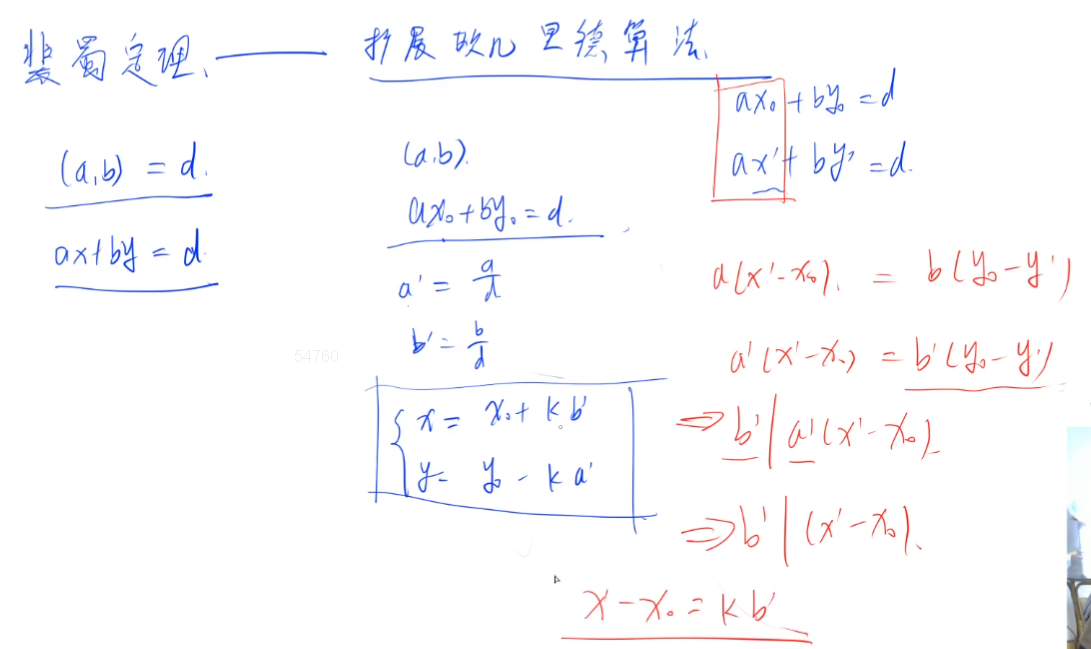 裴蜀定理、—— 扩展欧几里德算法.
(a,b) = d.
ax+by = d.
(a.b).
ax₀+by₀=d.
a' = a/d
b' = b/d
x = x₀+kb'
y = y₀-ka'
ax₀+by₀=d
ax'+by'=d.
a(x'-x₀). = b(y₀-y')
a'(x'-x₀) = b'(y₀-y')
⇒ b' | a'(x'-x₀)
⇒ b' | (x'-x₀).
x'-x₀=kb'
54760